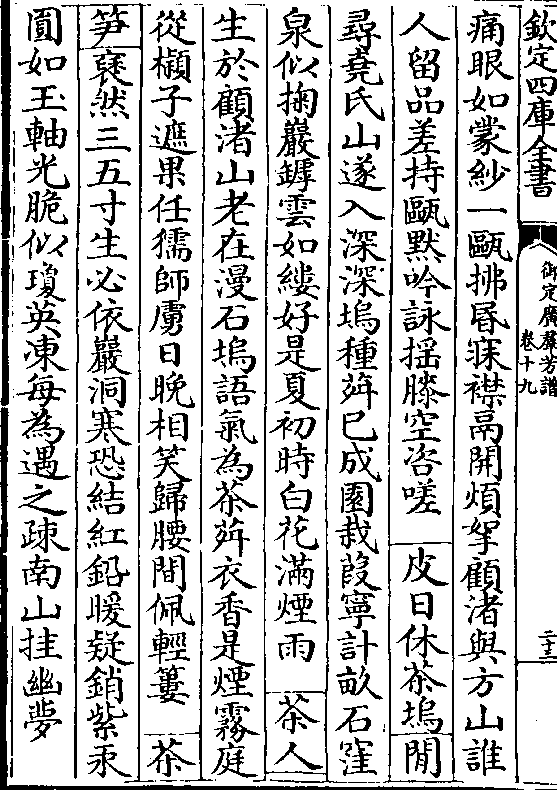 欽定四庫全書
御定廣羣芳譜
卷十九
二十三
痛眼如蒙紗一甌拂昬寐襟鬲開煩拏顧渚與方山誰
人留品差持甌黙吟詠揺膝空咨嗟　皮日休茶塢　閒
尋堯氏山遂入深深塢種荈已成園栽葭寧計畝石窪
泉似掬巖罅雲如縷好是夏初時白花滿煙雨　茶人
生於顧渚山老在漫石塢語氣為茶荈衣香是煙霧庭
從𣝗子遮果任獳師虜日晚相笑歸腰間佩輕簍　茶
笋　襃然三五寸生必依巖洞寒恐結紅鉛暖疑銷紫汞
圓如玉軸光脆似瓊英凍每為遇之疎南山挂幽夢